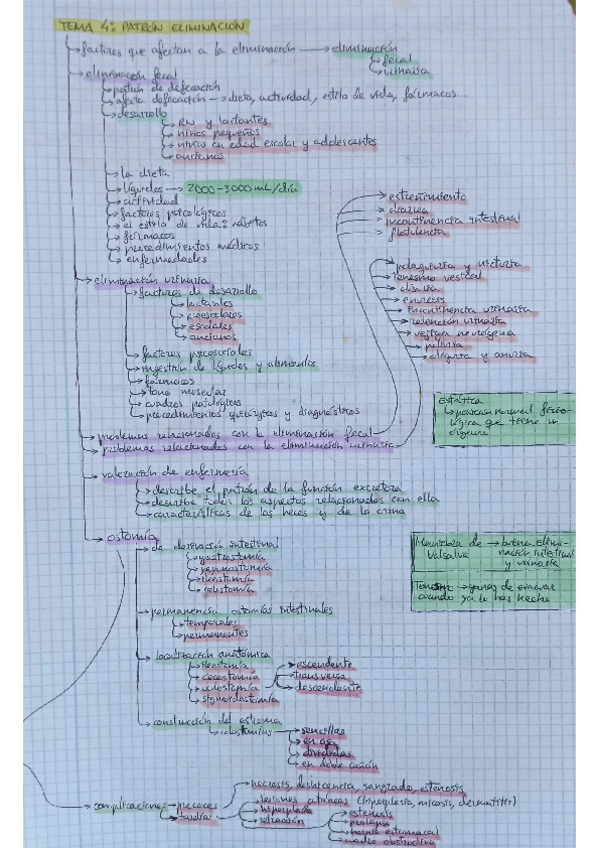 TEMA 4: PATRÓN ELIMINACIÓN
factores que afectan a la eliminación → eliminación
fecal
urinaria
eliminación fecal
patrón de defecación
afecta defecación → dieta, actividad, estilo de vida, fármacos...
desarrollo
RN y lactantes
niños pequeños
niños en edad escolar y adolescentes
ancianos
la dieta
líquidos → 2000-3000 mL/día
actividad
factores psicológicos
el estilo de vida: hábitos
fármacos
procedimientos médicos
enfermedades
estreñimiento
diarrea
incontinencia intestinal
flatulencia
eliminación urinaria
factores de desarrollo
lactantes
preescolares
escolares
ancianos
factores psicosociales
ingestión de líquidos y alimentos
fármacos
tono muscular
cuadros patológicos
procedimientos quirúrgicos y diagnósticos
polaquiuria y nicturia
tenesmo vesical
disuria
enuresis
incontinencia urinaria
retención urinaria
vejiga neurógena
poliuria
oliguria y anuria
problemas relacionados con la eliminación fecal
problemas relacionados con la eliminación urinaria
valoración de enfermería
describe el patrón de la función excretora
describe todos los aspectos relacionados con ella
características de las heces y de la orina
ostomía
de derivación intestinal
gastrostomía
yeyunostomía
ileostomía
colostomía
permanencia ostomías intestinales
temporales
permanentes
localización anatómica
ileostomía
cecostomía
colostomía
sigmoidostomía
ascendente
transversa
descendente
construcción del estoma
colostomías
sencillas
en asa
divididas
en doble cañón
Maniobra de Valsalva → buena eliminación intestinal y urinaria
→ ganas de evacuar cuando ya lo has hecho
complicaciones → precoces
tardías
necrosis, dehiscencia, sangrado, estenosis
lesiones cutáneas (hiperplasia, micosis, dermatitis)
hiperplasia
retracción
estenosis
prolapso
hernia estomacal
cuadro obstructivo